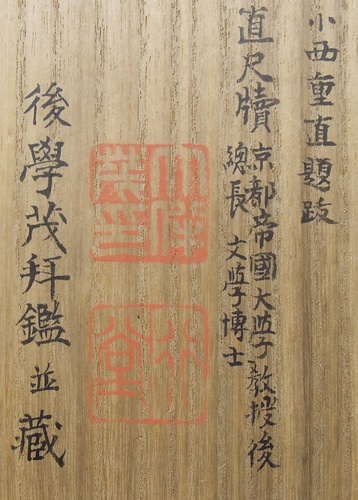 小西重直題跋
直尺牘
京都帝國大學教授後
總長 文學博士
後學茂拜鑑並藏